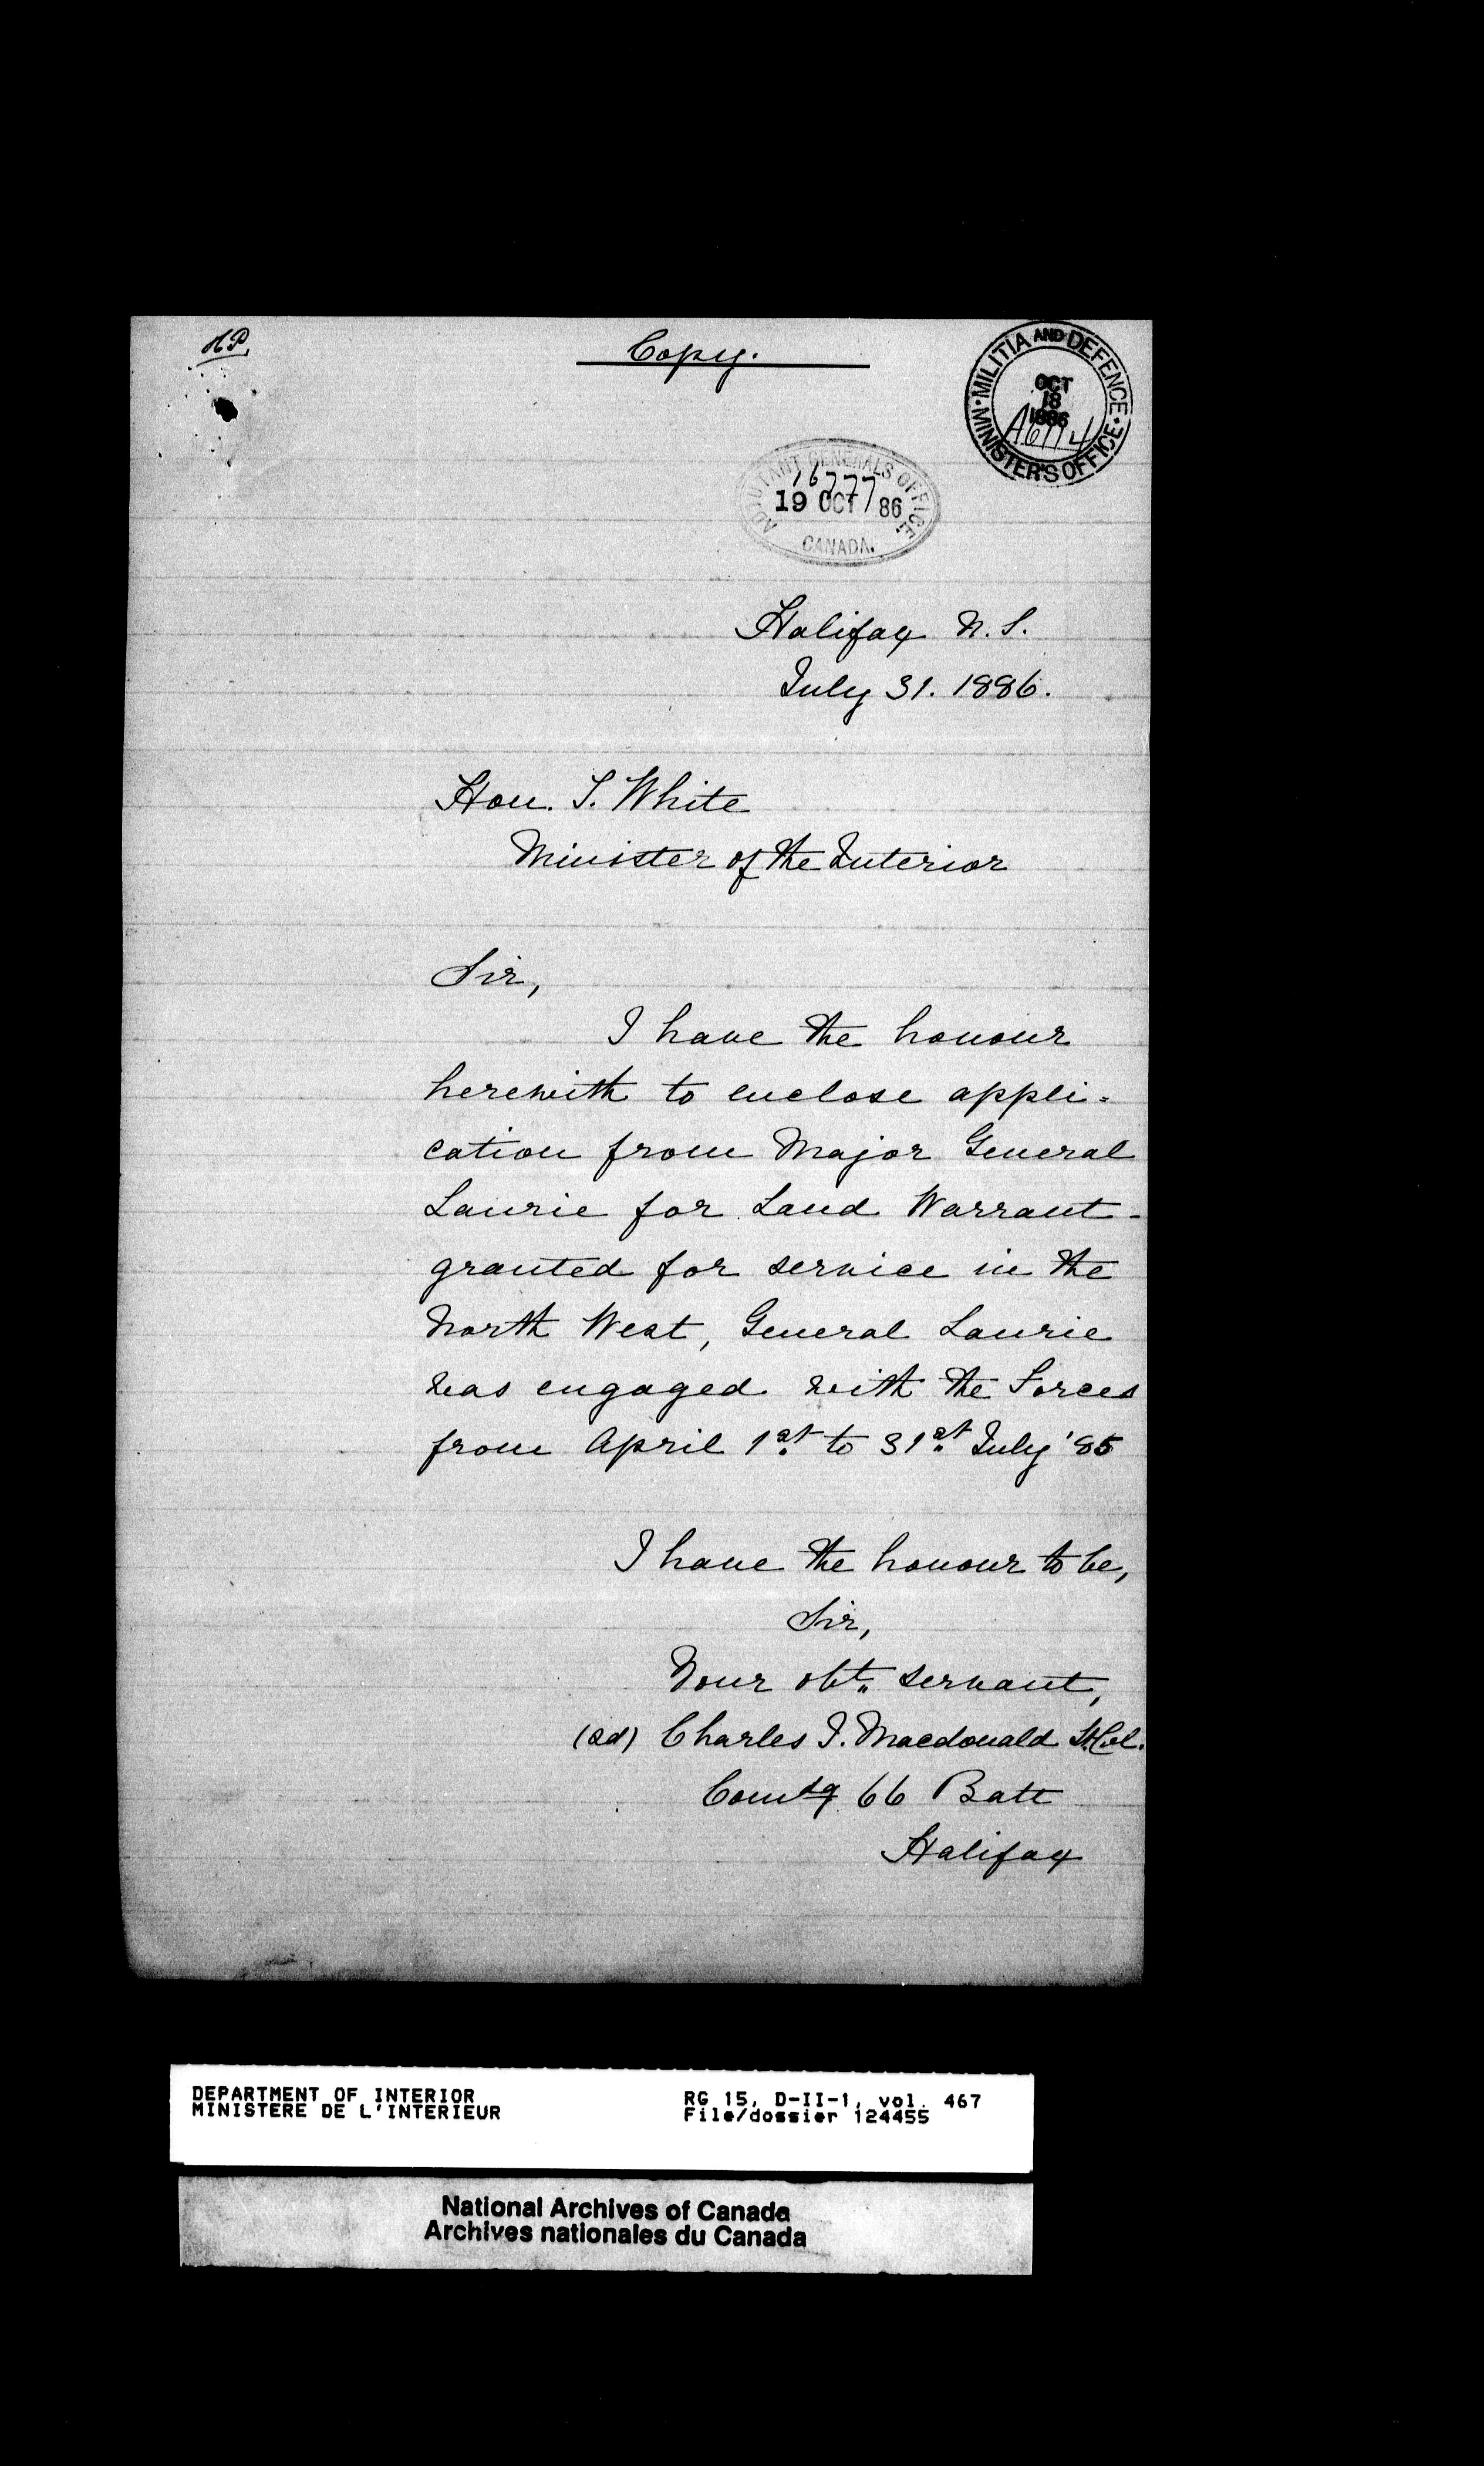 HP.
Copy.
MILITIA AND DEFENCE
MINISTER'S OFFICE
OCT
18
1886
A6114
ADJUTANT GENERALS OFFICE
16777
19 OCT 86
CANADA.
Halifax N.S.
July 31. 1886.
Hon. T. White
Minister of the Interior
Sir,
I have the honour
herewith to enclose appli-
cation from Major General
Laurie for Land Warrant -
granted for service in the
North West, General Laurie
was engaged with the Forces
from April 1st to 31st July '85
I have the honour to be,
Sir,
Your obt. servant,
(Sd) Charles J. Macdonald Lt. Col.
Comdg 66 Batt
Halifax
DEPARTMENT OF INTERIOR
MINISTERE DE L'INTERIEUR
RG 15, D-II-1, vol. 467
File/dossier 124455
National Archives of Canada
Archives nationales du Canada